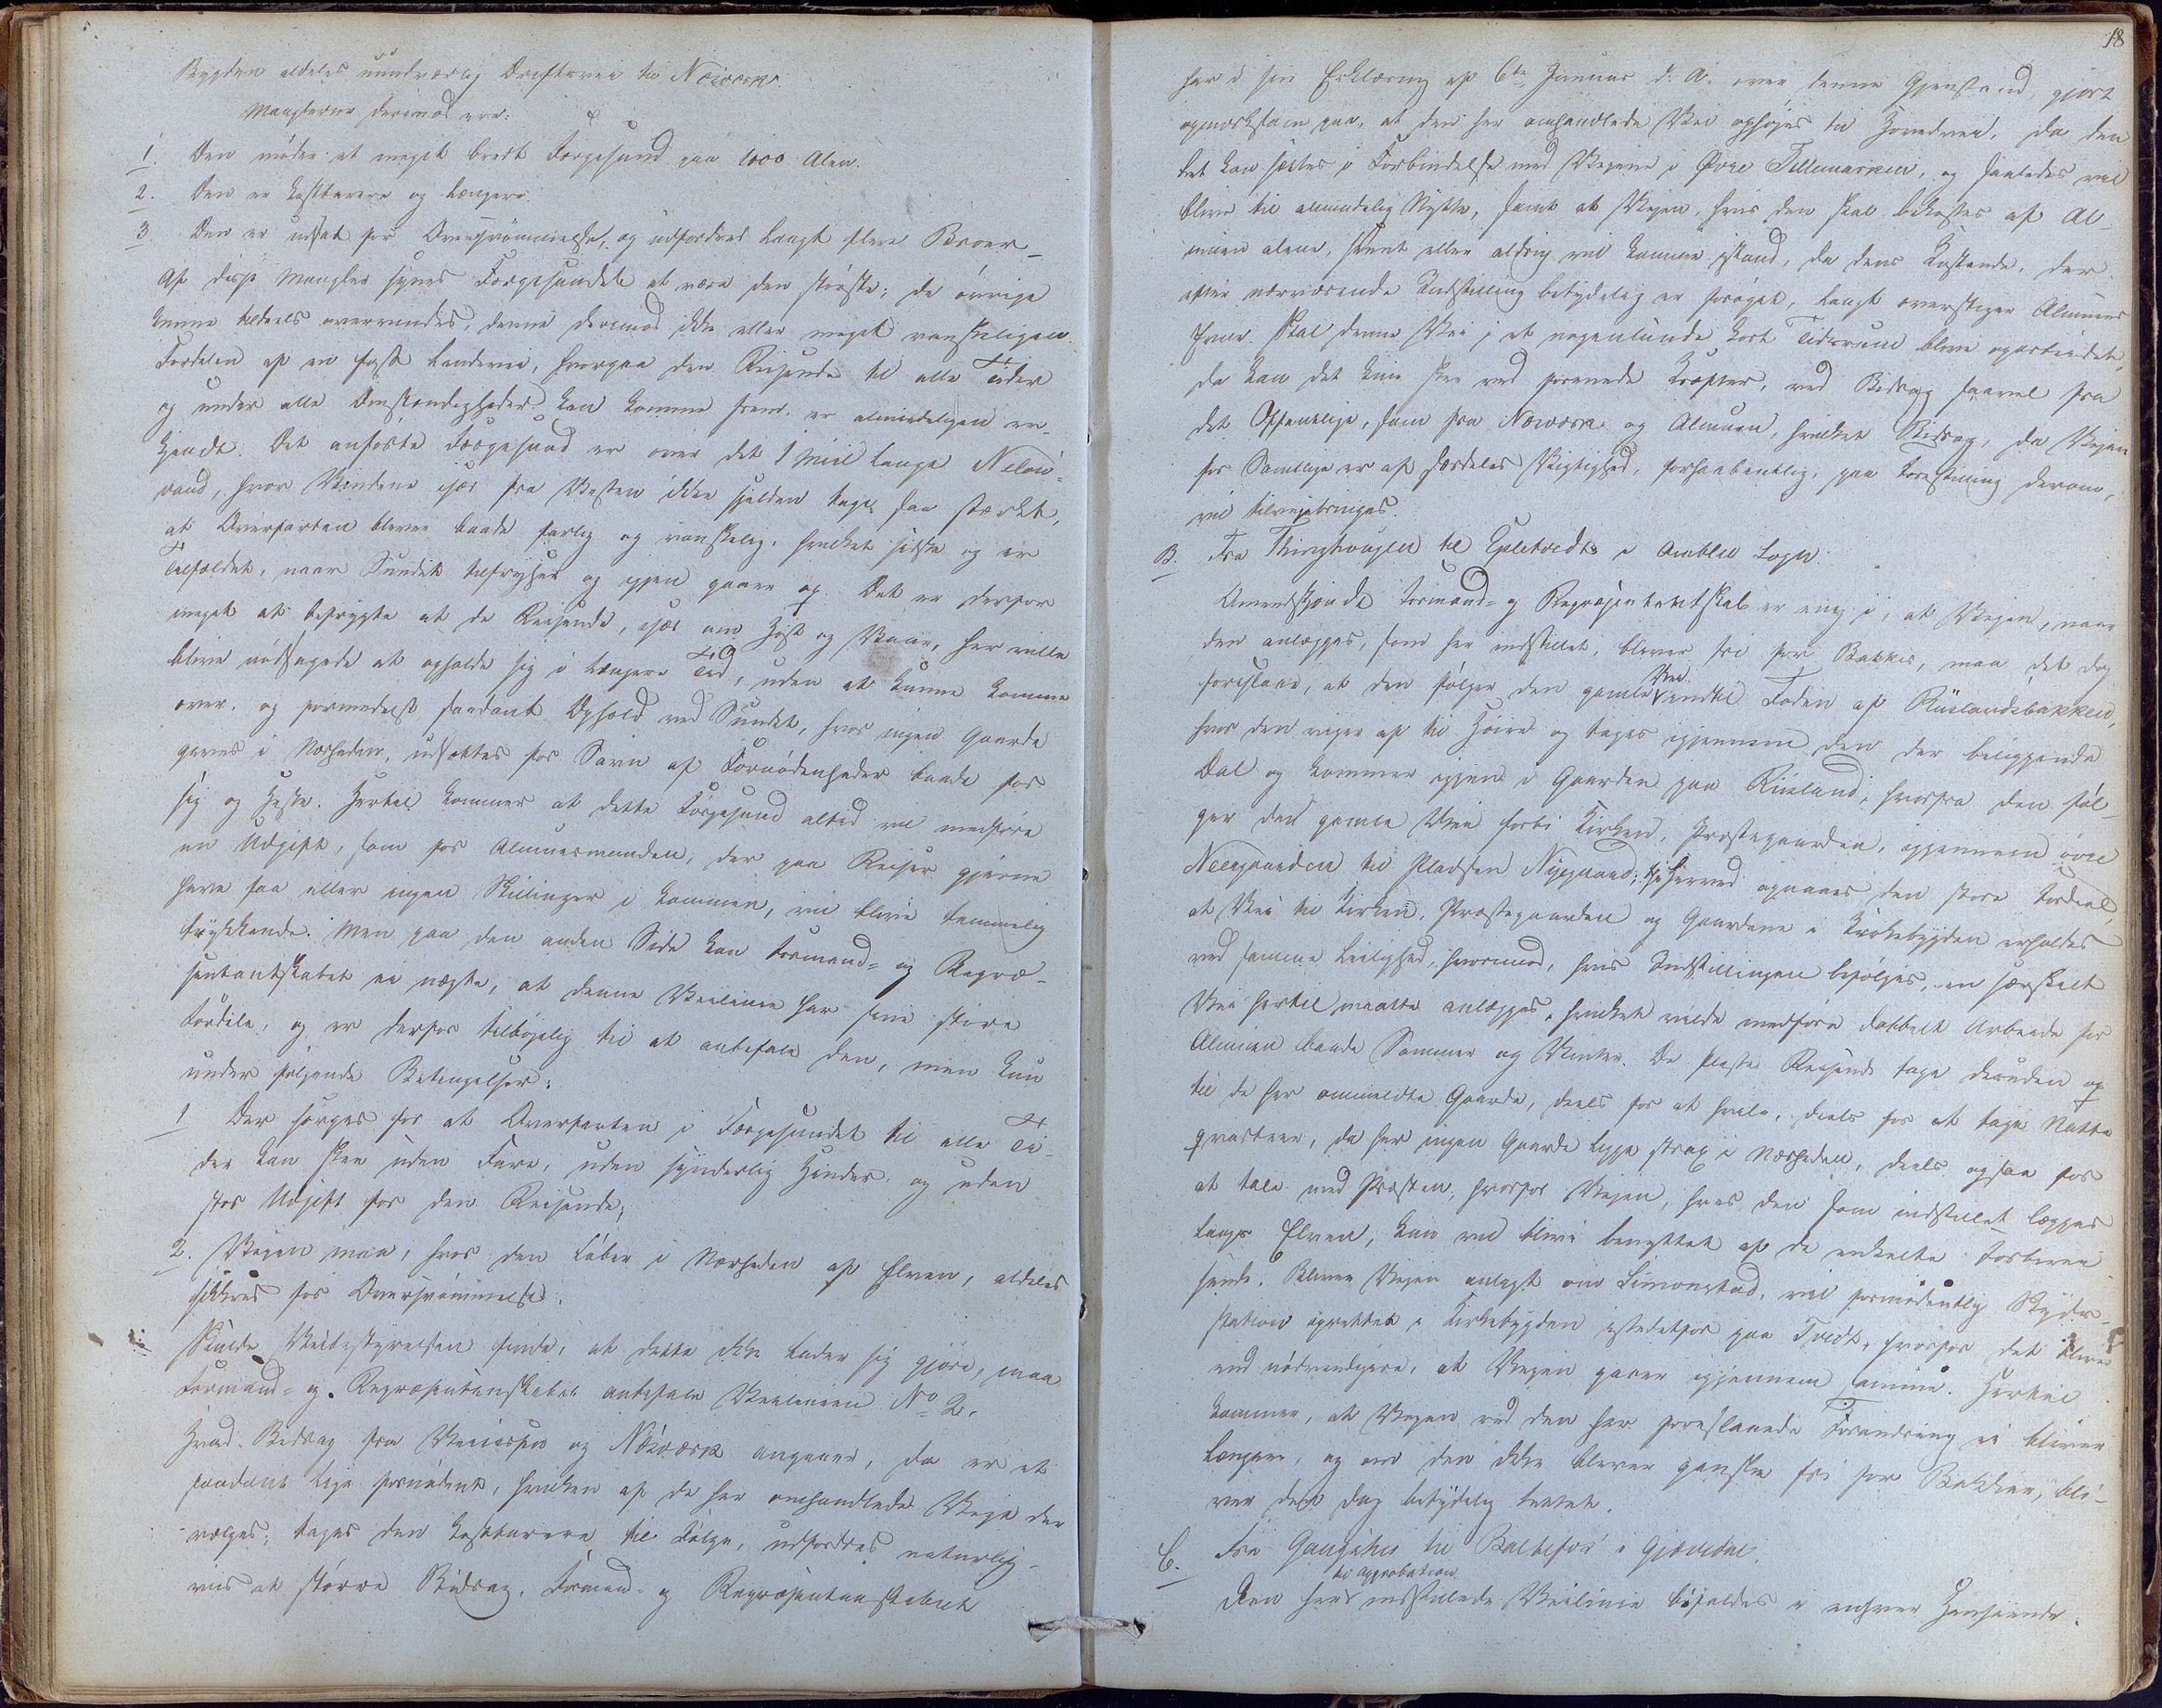 Bygden aldeles uundværlig Driftsvei til Næsværk.
Manglerne derimod ere:
1. Den møder et meget bredt Færgesund paa 1000 Alen.
2. Den er kostbarere og længere.
3. Den er udsat for Oversvømmelse, og udfordrer langt flere Broer_
Af disse Mangler synes Færgesundet at være den største; de øvrige
kunne tildeels overvindes, denne derimod ikke eller meget vanskeligen.
Fordelen af en fast Landevei, hvorpaa den Reisende til alle Tider
og under alle Omstændigheder kan komme frem, er almindeligen er-
kjendt. Det anførte Færgesund er over det 1 Miil lange Nelou-
vand, hvor Vindene især fra Vesten ikke sjelden tage saa stærkt,
at Overfarten bliver baade farlig og vanskelig, hvilket sidste og er
Tilfældet, naar Sundet tilfryser og igjen gaaer op. Det er derfor
meget at befrygte at de Reisende, især om Høst og Vaar, her ville
blive nødsagede at opholde sig i længere Tid, uden at kunne komme
over, og formedelst saadant Ophold ved Sundet, hvor ingen Gaarde
gives i Nærheden, udsættes for Savn af Fornødenheder baade for
sig og Heste. Hertil kommer at dette Færgesund altid vil medføre
en Udgift, som for Almuesmanden, der paa Reiser gjerne
have faa eller ingen Skillinger i Lommen, vil blive temmelig
trykkende. Men paa den anden Side kan Formand- og Repræ-
sentantskabet ei nægte, at denne Veilinie har sine store
Fordele, og er derfor tilbøjelig til at anbefale den, men kun
under følgende Betingelser:
1 Der sørges for at Overfarten i Færgesundet til alle Ti-
der kan skee uden Fare, uden synderlig Hinder, og uden
stor Udgift for den Reisende;
2. Vejen maa, hvor den løber i Nærheden af Elven, aldeles
sikkres for Oversvømmelse.
Skulde Veibestyrelsen finde, at dette ikke lader sig gjøre, maa
Formand- og Repræsentanskabet anbefale Veilinien No 2.
Hvad Bidrag fra og Næsværk angaaer, da er et
saadant lige fornødent, hvilken af de her omhandlede Veje der
vælges; tages den kostbarere til Følge, udfordres naturlig-
viis et større Bidrag. Formand- og Repræsentanskabet
18
har i sin Erklæring af 6te Januar d. A. over denne Gjenstand gjort
opmærksom paa, at den her omhandlede Vei ophøjes til Hovedvei, da den
let kan sættes i Forbindelse med Vejene i Øvre Tellemarken, og saaledes vil
blive til almindelig Nytte, samt at Vejen, hvis den skal bekostes af Al-
muen alene, seent eller aldrig vil komme istand, da dens Kostende, der
efter nærværende Indstilling betydelig er forøget, langt overstiger Almuens
Evne. Skal denne Vei i et nogenlunde kort Tidsrum blive oparbeidet,
da kan det kun skee ved forenede Kræfter, ved Bidrag saavel fra
det Offentlige, som fra Næsværk og Almuen, hvilket Bidrag, da Vejen
for Samtlige er af særdeles Vigtighed, forhaabentlig, paa Forestilling derom,
vil tilvejebringes.
B. Fra Thinghougen til Epletvedt i Aamble Sogn.
Omendskjøndt Formand- og Repræsentantskab er enig i, at Vejen, naar
den anlægges, som her indstillet, bliver fri for Bakker, maa det dog
foreslaae, at den følger den gamle Vei indtil Foden af Riislandsbakken,
hvor den viger af til Høire og tages igjennem den der beliggende
Dal og kommer igjen i Gaarden paa Riisland, hvorfra den føl-
ger den gamle Vei forbi Kirken, Præstegaarden, igjennem øvre
Neergaarden til Pladsen Nygaard; thi herved opnaaes den store Fordeel,
at Vei til Kirken, Præstegaarden og Gaardene i Kirkebygden erholdes
ved samme Leilighed, hvorimod, hvis Indstillingen befølges, en særskilt
Vei hertil maatte anlægges, hvilket vilde medføre dobbelt Arbeide for
Almuen baade Sommer og Vinter. De fleste Reisende tage desuden op
til de her ommeldte Gaarde, deels for at hvile, deels for at tage Natte
qvarteer, da her ingen Gaarde ligge strax i Nærheden, deels ogsaa for
at tale med Præsten; hvorfor Vejen, hvis den som indstillet lægges
langs Elven, kun vil blive benyttet af de enkelte Forbirei-
sende. Bliver Vejen anlagt om Simonstad, vil formodentlig Skyds-
station oprettes i Kirkebygden istedetfor paa Tvedt, hvorfor det bliver
end nødvendigere, at Vejen gaaer igjennem samme. Hertil
kommer, at Vejen ved den her foreslaaede Forandring ei bliver
længere, og om den ikke bliver ganske fri for Bakker, bli-
ver dog betydelig lettet.
C. Fra Gangshei til Baltefos i Gjøvdal.
til approbation
Den her indstillede Veilinie bifaldes i enhver Henseende.